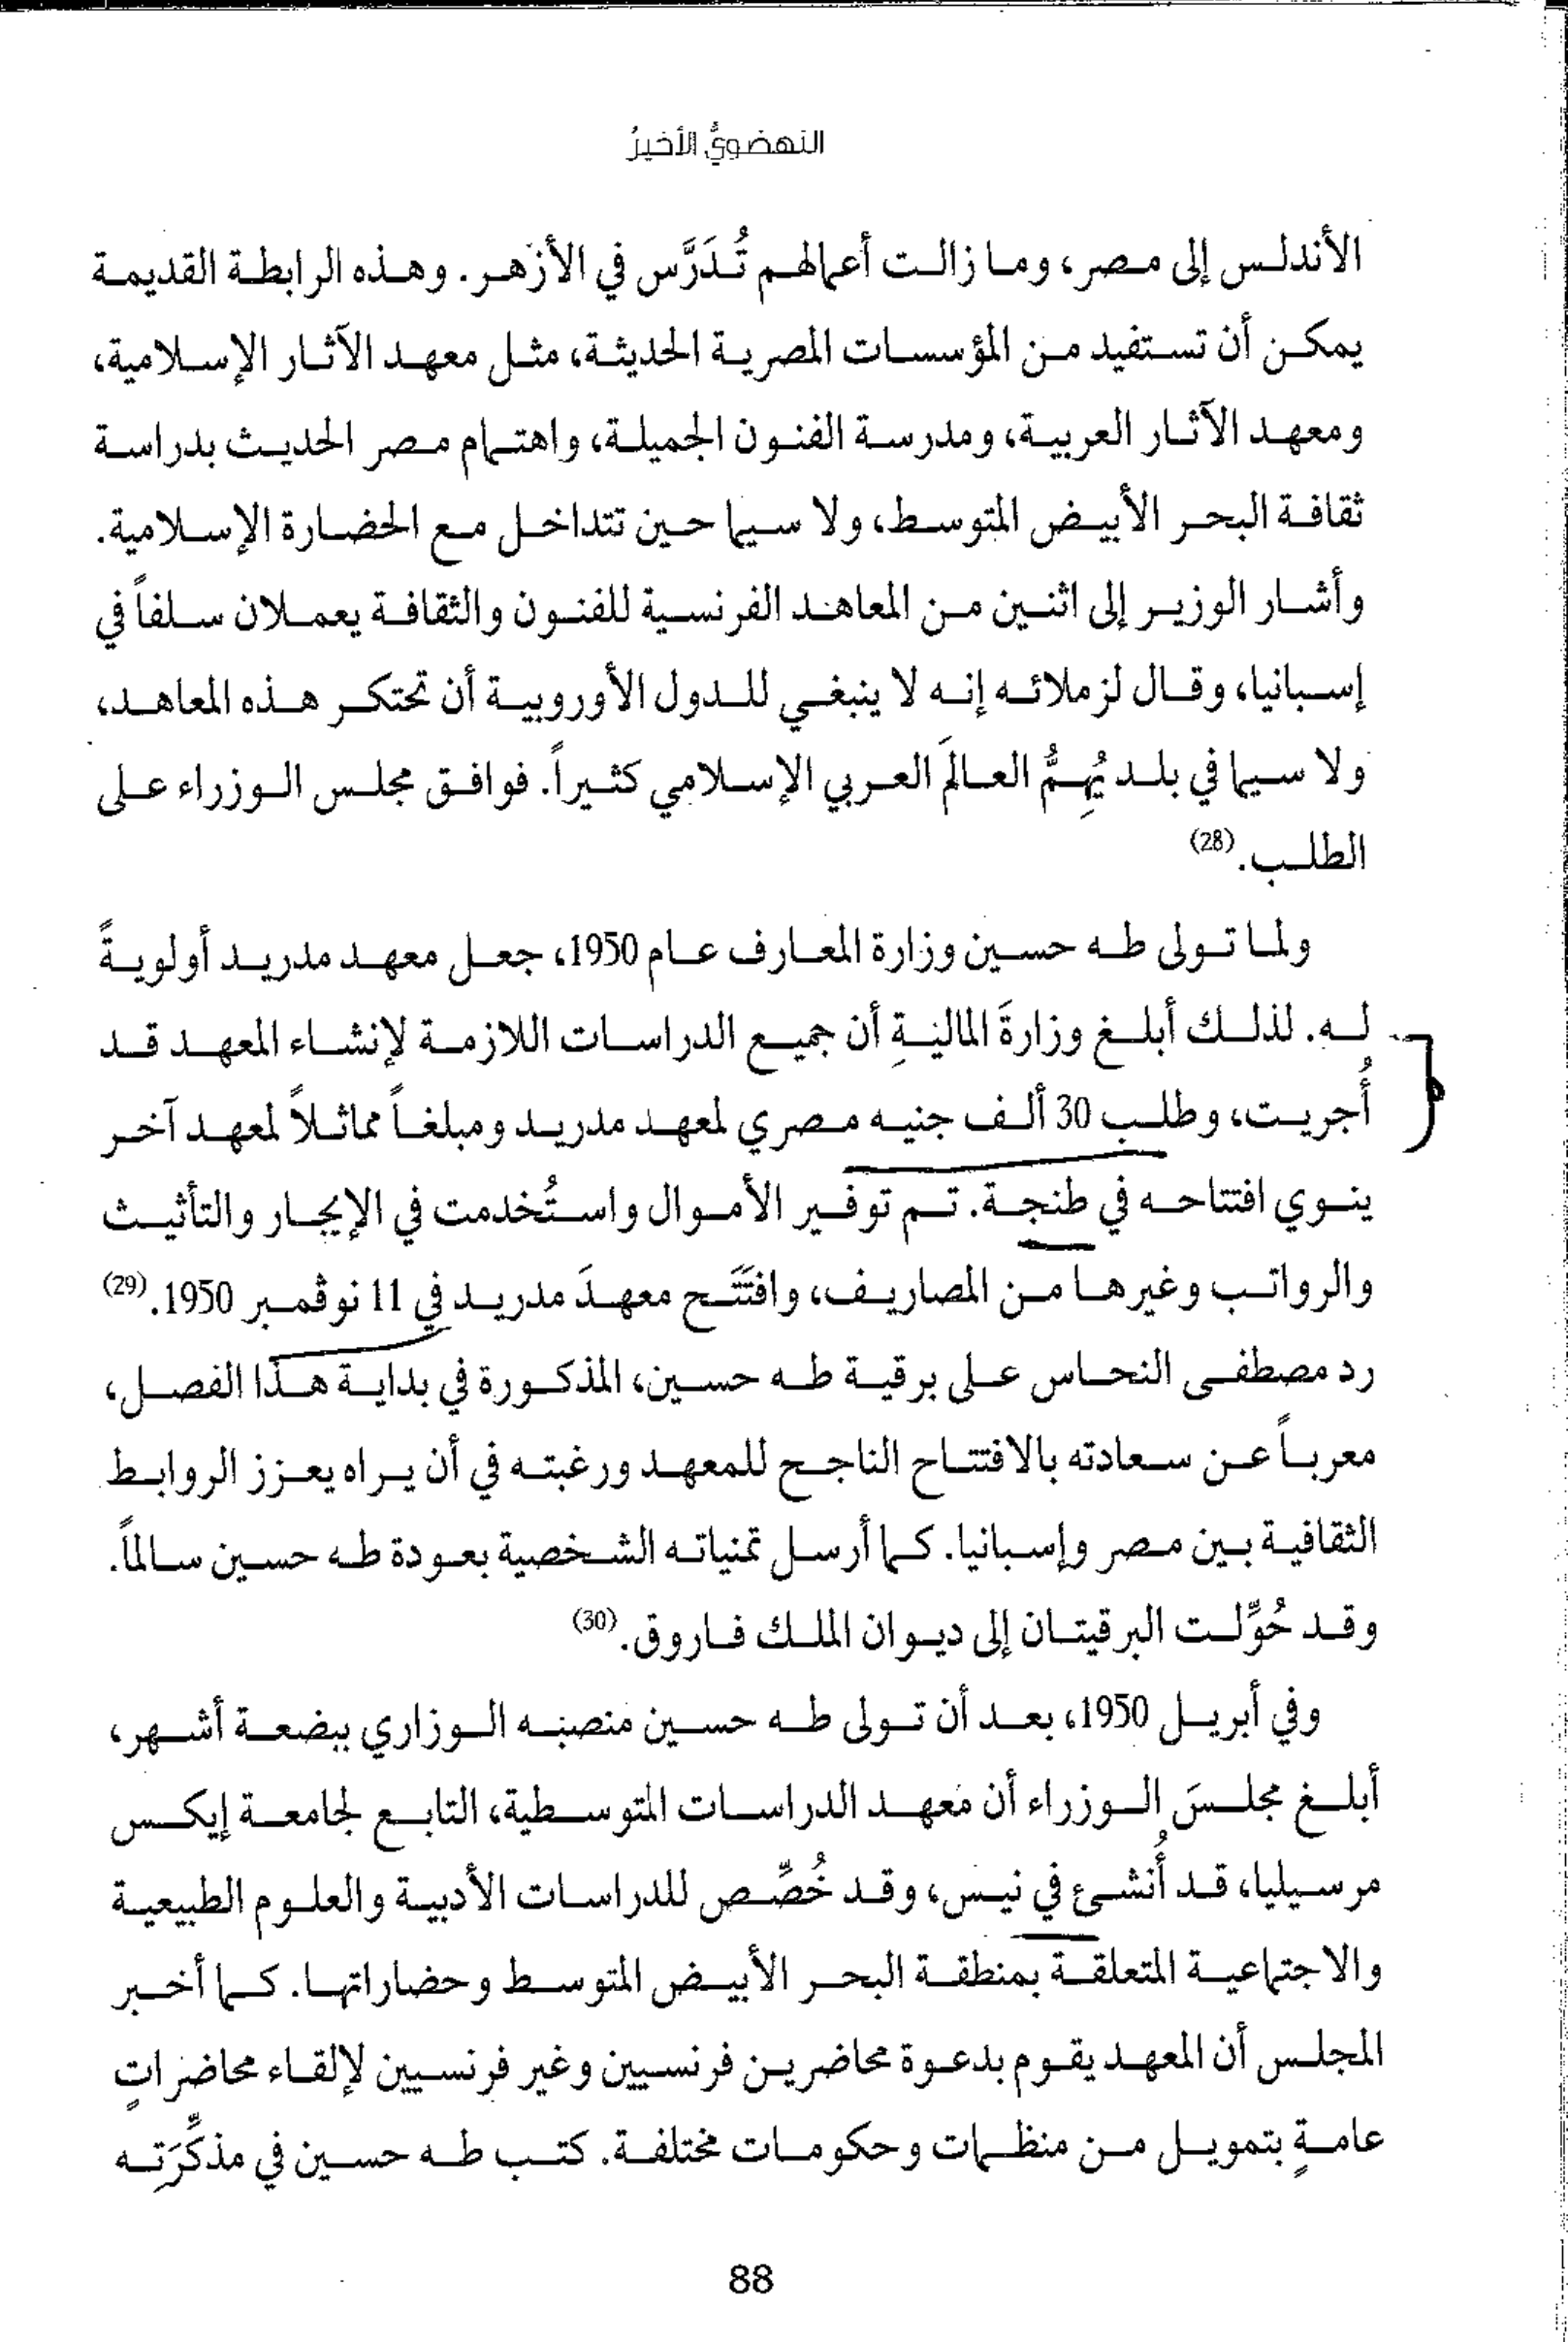 النهضويُّ الأخيرُ
الأندلس إلى مصر، وما زالت أعمالهم تُدَرَّس في الأزهر. وهذه الرابطة القديمة
يمكن أن تستفيد من المؤسسات المصرية الحديثة، مثل معهد الآثار الإسلامية،
ومعهد الآثار العربية، ومدرسة الفنون الجميلة، واهتمام مصر الحديث بدراسة
ثقافة البحر الأبيض المتوسط، ولا سيما حين تتداخل مع الحضارة الإسلامية.
وأشار الوزير إلى اثنين من المعاهد الفرنسية للفنون والثقافة يعملان سلفاً في
إسبانيا، وقال لزملائه إنه لا ينبغي للدول الأوروبية أن تحتكر هذه المعاهد،
ولا سيما في بلد يُهِمُّ العالَم العربي الإسلامي كثيراً. فوافق مجلس الوزراء على
الطلب.(28)
ولما تولى طه حسين وزارة المعارف عام 1950، جعل معهد مدريد أولويةً
له. لذلك أبلغ وزارةَ الماليةِ أن جميع الدراسات اللازمة لإنشاء المعهد قد
أُجريت، وطلب 30 ألف جنيه مصري لمعهد مدريد ومبلغاً مماثلاً لمعهد آخر
ينوي افتتاحه في طنجة. تم توفير الأموال واستُخدمت في الإيجار والتأثيث
والرواتب وغيرها من المصاريف، وافتَتَح معهدَ مدريد في 11 نوڤمبر 1950.(29)
رد مصطفى النحاس على برقية طه حسين، المذكورة في بداية هذا الفصل،
معرباً عن سعادته بالافتتاح الناجح للمعهد ورغبته في أن يراه يعزز الروابط
الثقافية بين مصر وإسبانيا. كما أرسل تمنياته الشخصية بعودة طه حسين سالماً.
وقد حُوِّلت البرقيتان إلى ديوان الملك فاروق.(30)
وفي أبريل 1950، بعد أن تولى طه حسين منصبه الوزاري ببضعة أشهر،
أبلغ مجلسَ الوزراء أن معهد الدراسات المتوسطية، التابع لجامعة إيكس
مرسيليا، قد أُنشئ في نيس، وقد خُصِّص للدراسات الأدبية والعلوم الطبيعية
والاجتماعية المتعلقة بمنطقة البحر الأبيض المتوسط وحضاراتها. كما أخبر
المجلس أن المعهد يقوم بدعوة محاضرين فرنسيين وغير فرنسيين لإلقاء محاضراتٍ
عامةٍ بتمويل من منظمات وحكومات مختلفة. كتب طه حسين في مذكِّرَتِه
88